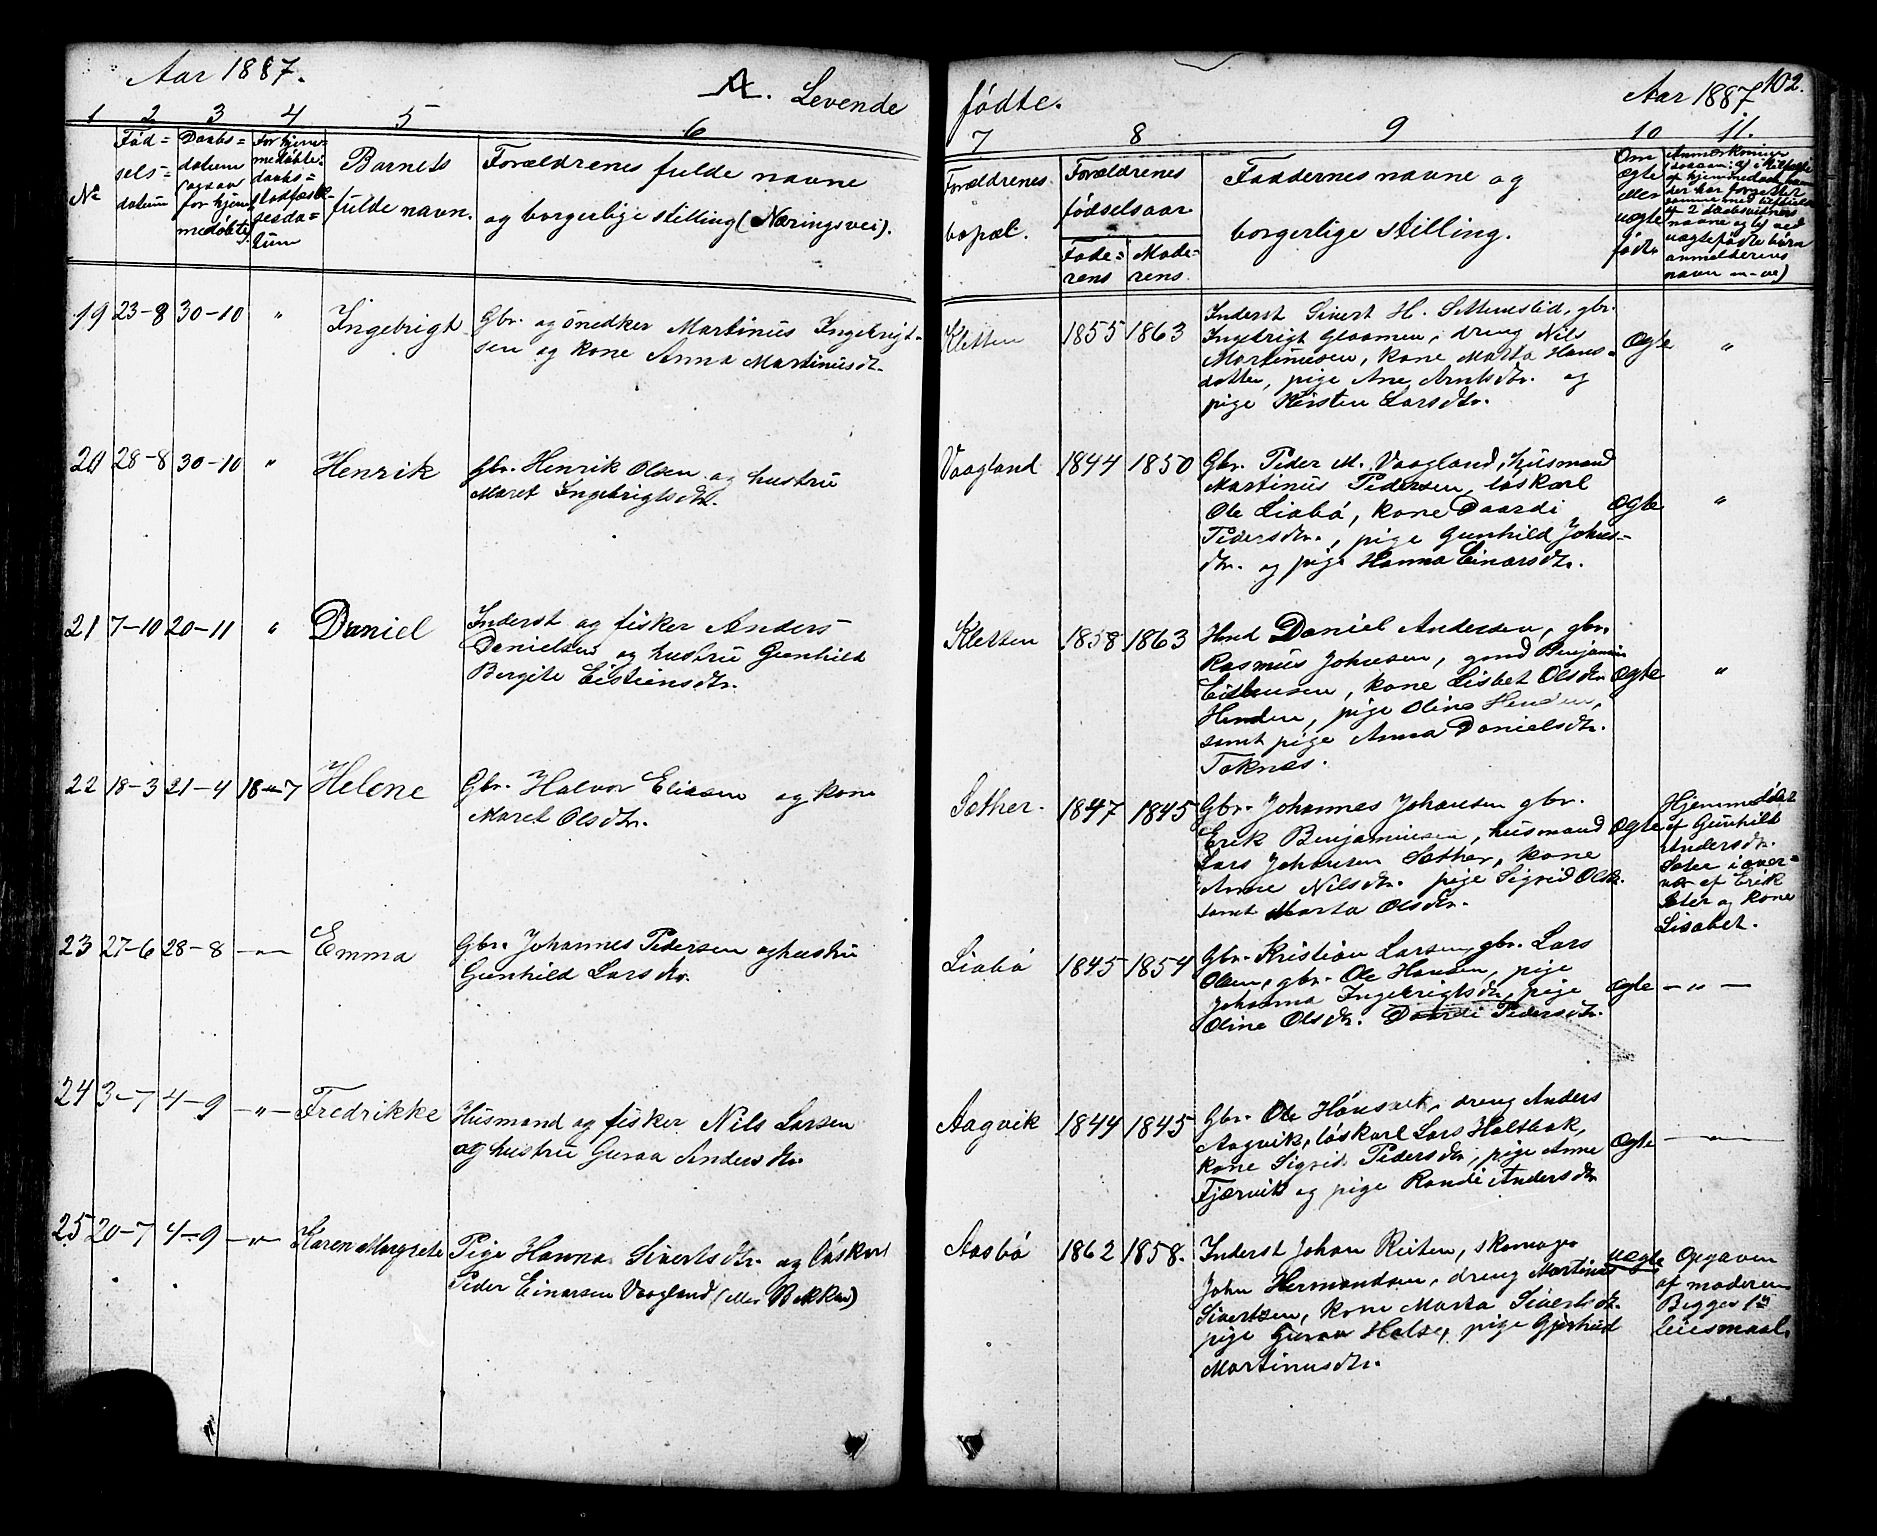 Aar 1887.
A. Levende
1 2 3 4 5 6
No
Fød=
sels=
datum
Daabs=
datum
(ogsaa
for hjem
medøbte)
For hjem=
medøbte:
daabs=
stadfæstel
sesda=
tum
Barnets
fulde navn.
Forældrenes fulde navne
og borgerlige stilling (Næringsvei).
19 23-8 30-10 "
Ingebrigt
Gbr. og snedker Martinus Ingebrigt-
sen og kone Anna Martinusdtr.
20 28-8 30-10 "
Henrik
Gbr. Henrik Olsen og hustru
Maret Ingebrigtsdtr.
21 7-10 20-11 "
Daniel
Inderst og fisker Anders
Danielsen og hustru Gunhild
Bergite Eistiensdtr.
22 18-3 21-4 18-7
Helene
Gbr. Halvor Eliasen og kone
Maret Olsdtr.
23 27-6 28-8 -"-
Emma
Gbr. Johannes Pedersen og hustru
Gunhild Larsdtr.
24 3-7 4-9 -"-
Fredrikke
Husmand og fisker Nils Larsen
og hustru Guraa Andersdtr.
25 20-7 4-9 -"-
Karen Margrete
Pige Hanna Sivertsdtr. og løskarl
Peder Einarsen Vaagland (eller Bakken)
fødte.
Aar 1887
102.
7 8 9 10 11.
Forældrenes
bopæl.
Forældrenes
fødselsaar
Fade=
rens
Mode=
rens
Faddernes navne og
borgerlige stilling.
Om
ægte
eller
uægte
født
Anmerkninger
af hjemmedaab
uægtefødte børn
anmelderens
navn
Kletten 1855 1863
Inderst Sivert H. Settemslid, gbr.
Ingebrigt Glaamen, dreng Nils
Martinusen, kone Marta Hans=
datter, pige Ane Arntsdtr. og
pige Kirsten Larsdtr.
Ægte "
Vaagland 1844 1850
Gbr. Peder M. Vaagland, husmand
Martinus Pedersen, løskarl
Ole Liabø, kone Daardi
Pedersdtr., pige Gunhild Johns-
dtr. og pige Hanna Einarsdtr.
Ægte "
Kletten 1858 1863
Daniel Andersen, gbr.
Rasmus Johnsen, Benjamin
kone Lisbet Olsdtr
Henden, pige Oline Henden,
samt pige Anna Danielsdtr.
Taknes.
Ægte "
Sæther. 1847 1845
Gbr. Johannes Johansen gbr.
Erik Benjaminsen, husmand
Lars Johansen Sæther, kone
Anne Nilsdtr. pige Sigrid Olsdtr.
samt Marta Olsdtr.
Ægte
Hjemmedøbt
af Gunhild
Andersdtr.
Sæter i over=
vær af Erik
Sæter og kone
Lisabet.
Liabø 1845 1854
Gbr. Kristian Larsen, gbr. Lars
Olsen, gbr. Ole Hansen, pige
Johanna Ingebrigtsdtr., pige
Oline Olsdtr. Daardi Pedersdtr.
Ægte -"-
Aagvik 1844 1845
Gbr. Ole dreng Anders
Aagvik, løskarl Lars Holtbak,
kone Sigrid Pedersdtr., pige Anne
Fjærvik og pige Randi Andersdtr
Ægte -"-
Aasbø 1862 1858.
Inderst Johan Reiten, skomager
John Hermandsen, dreng Martinus
Sivertsen, kone Marta Sivertsdtr.
pige Guraa Halse, pige Gjertrud
Martinusdtr.
uægte
Opgaven
af moderen
Begges 1ste
leiesmaal.